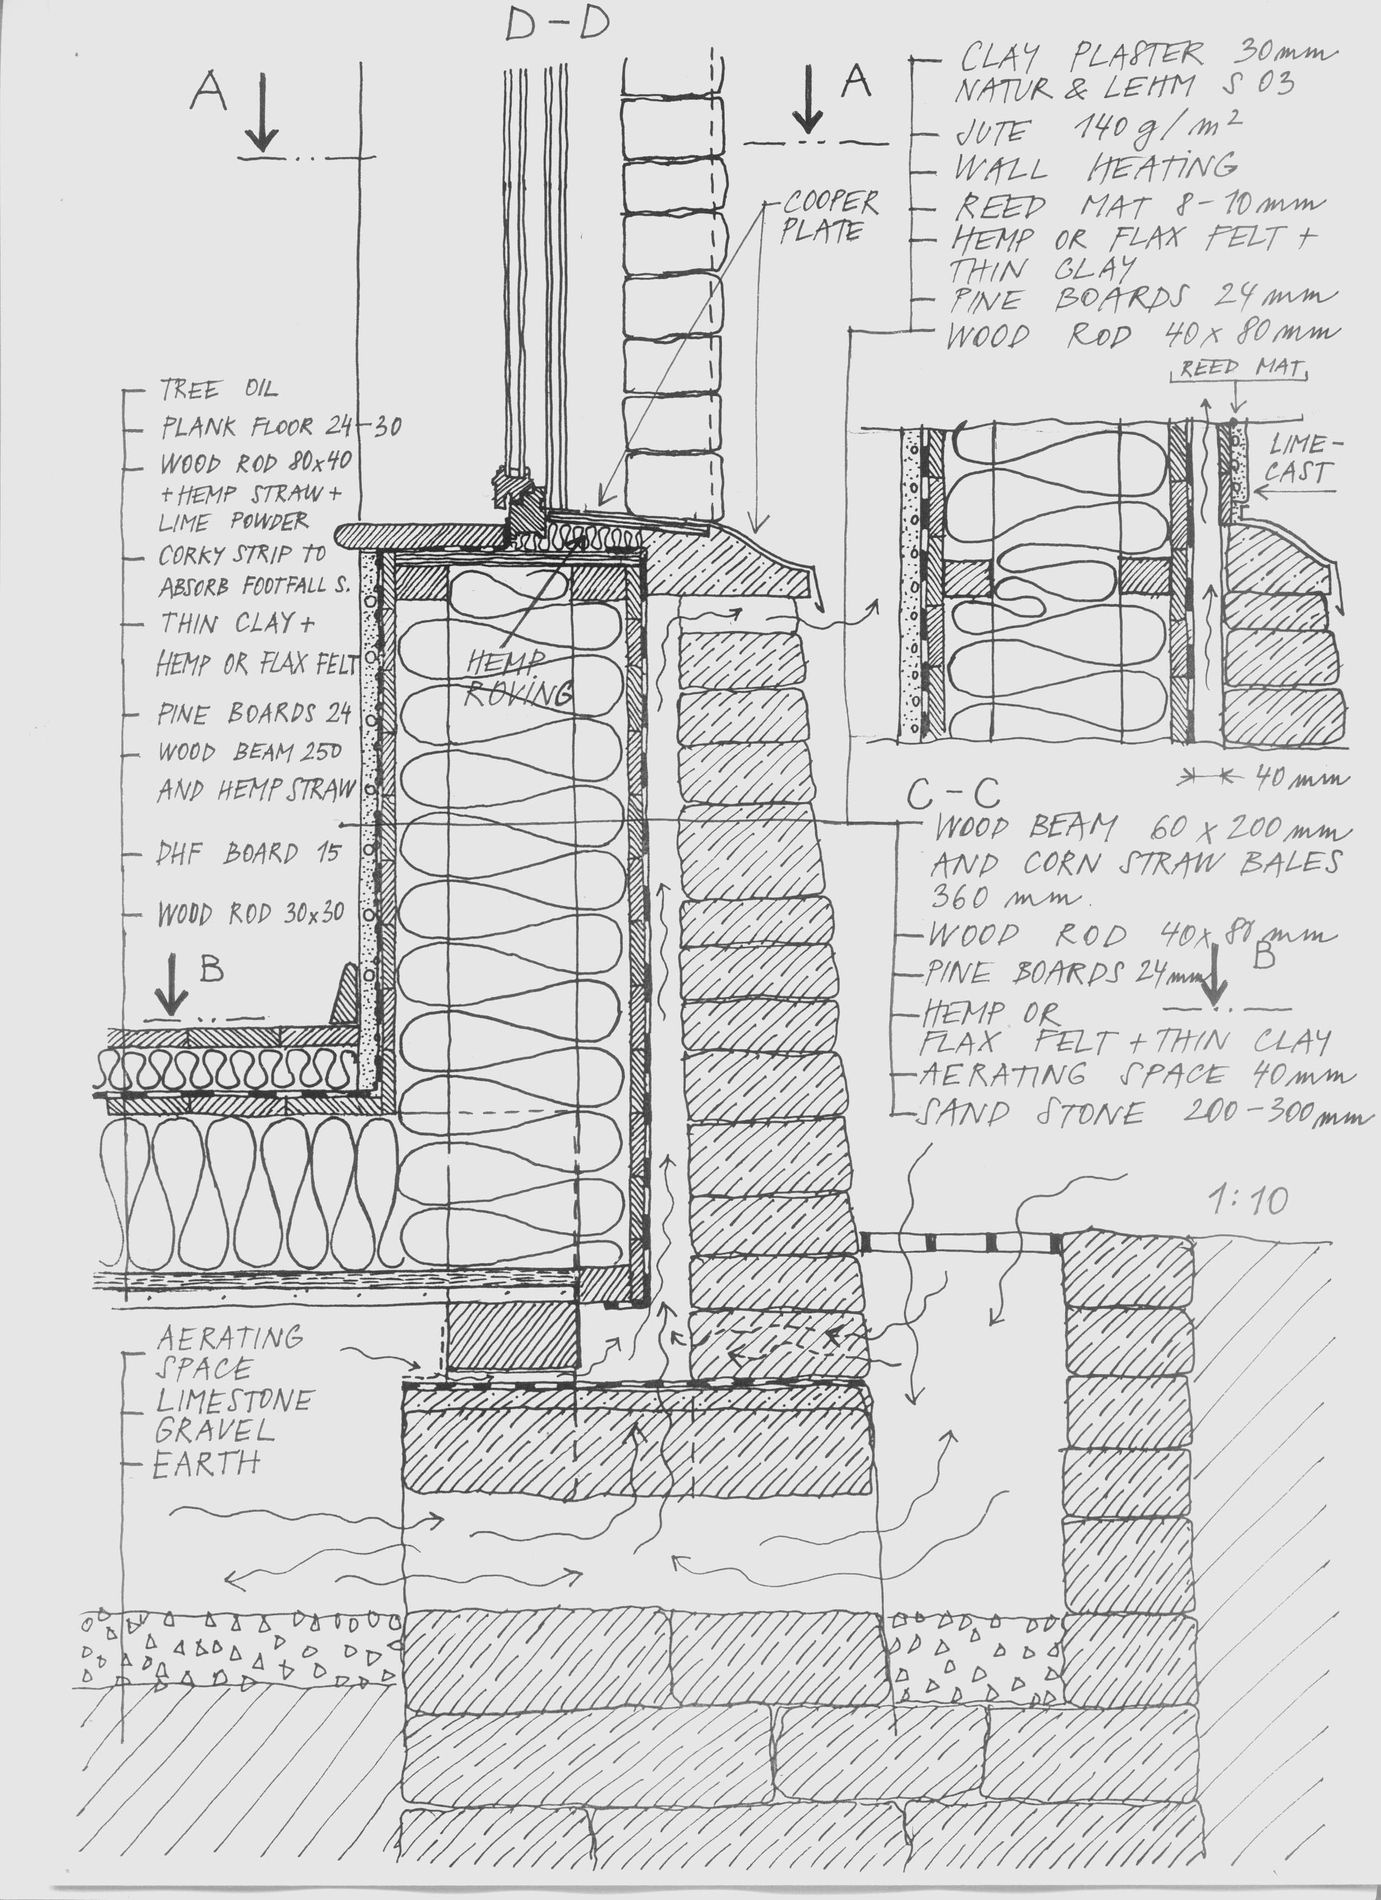 D-D
A
A
CLAY PLASTER 30mm
NATUR & LEHM S 03
JUTE 140g/m²
WALL HEATING
REED MAT 8-10mm
HEMP OR FLAX FELT +
THIN CLAY
PINE BOARDS 24mm
WOOD ROD 40x80mm
COOPER
PLATE
REED MAT
LIME-
CAST
40mm
C-C
TREE OIL
PLANK FLOOR 24-30
WOOD ROD 80x40
+HEMP STRAW+
LIME POWDER
CORKY STRIP TO
ABSORB FOOTFALL S.
THIN CLAY+
HEMP OR FLAX FELT
PINE BOARDS 24
WOOD BEAM 250
AND HEMP STRAW
DHF BOARD 15
WOOD ROD 30x30
HEMP
ROVING
B
WOOD BEAM 60x200mm
AND CORN STRAW BALES
360 mm.
WOOD ROD 40x80mm
PINE BOARDS 24mm
B
HEMP OR
FLAX FELT + THIN CLAY
AERATING SPACE 40mm
SAND STONE 200-300mm
1:10
AERATING
SPACE
LIMESTONE
GRAVEL
EARTH